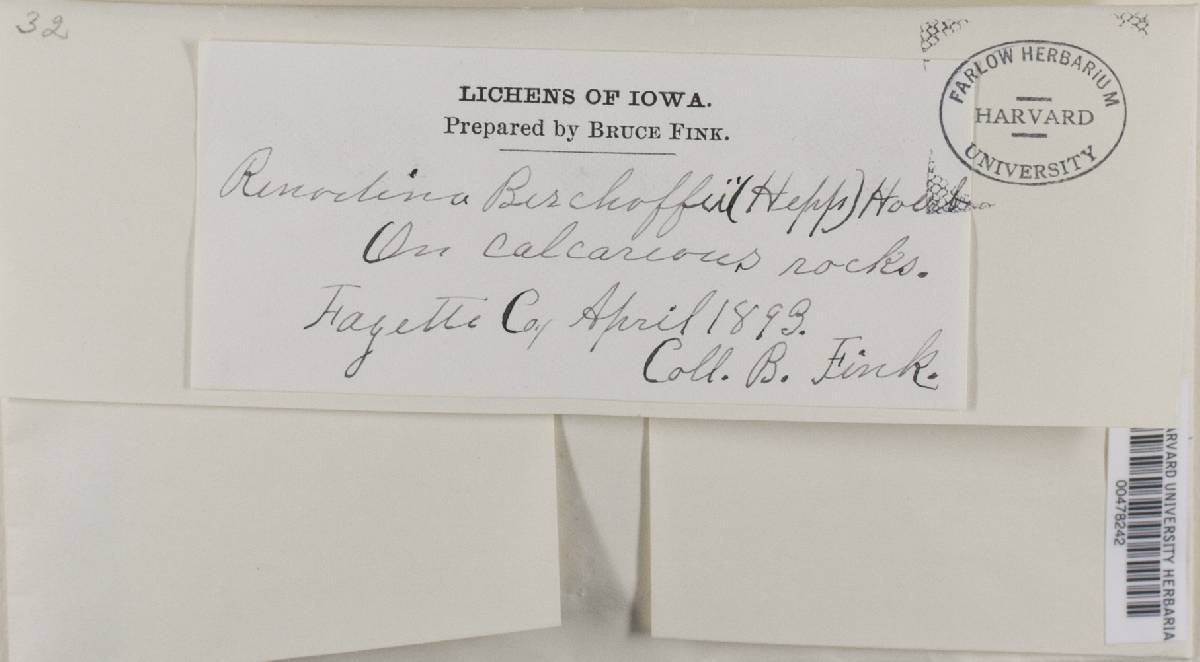 32
LICHENS OF IOWA.
Prepared by BRUCE FINK.
FARLOW HERBARIUM
HARVARD
UNIVERSITY
Rinodina Bischoffii (Hepp)
On calcareous rocks.
Fayette Co, April 1893.
Coll. B. Fink.
ARVARD UNIVERSITY HERBARIA
00478242